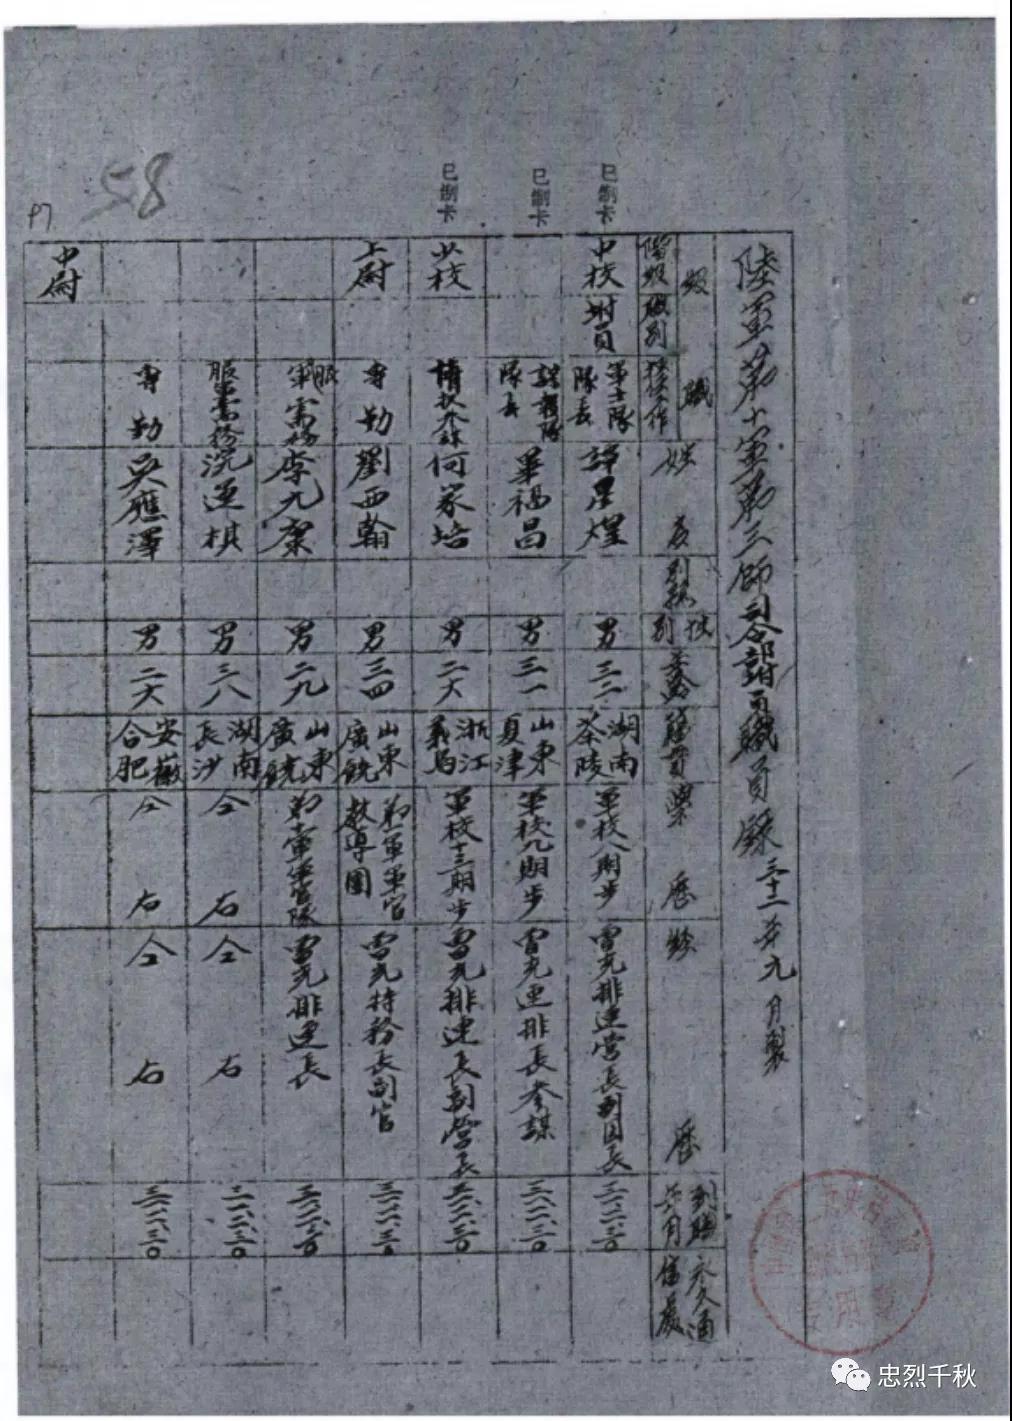 58
P7
已制卡
已制卡
已制卡
陸軍第十軍第三師司令部附員職員錄 三十二年九月製
級 職
階級 職別 扶任工作
姓 名
別號
性別
年齡
籍貫
學 歷
經 歷
到職年月
永久通信處
中校 附員 軍士隊隊長 譚星煌 男 三二 湖南茶陵 軍校八期步 曾充排連營長副團長 三一、一二、三〇
諜報隊隊長 畢福昌 男 三一 山東夏津 軍校九期步 曾充連排長參謀 三一、一二、三〇
少校 何家培 男 二六 浙江義烏 軍校十三期步 曾充排連長副營長 三一、一二、三〇
上尉 專勤 劉西翰 男 三四 山東廣饒 第軍軍官教導團 曾充特務長副官 三一、一二、三〇
服軍需務 李九 男 二九 山東廣饒 軍官隊 曾充排連長 三一、一二、三〇
服軍需務 浣運棋 男 三八 湖南長沙 仝右 仝右 三一、一二、三〇
專勤 吳應澤 男 二六 安徽合肥 仝右 仝右 三一、一二、三〇
中尉
忠烈千秋